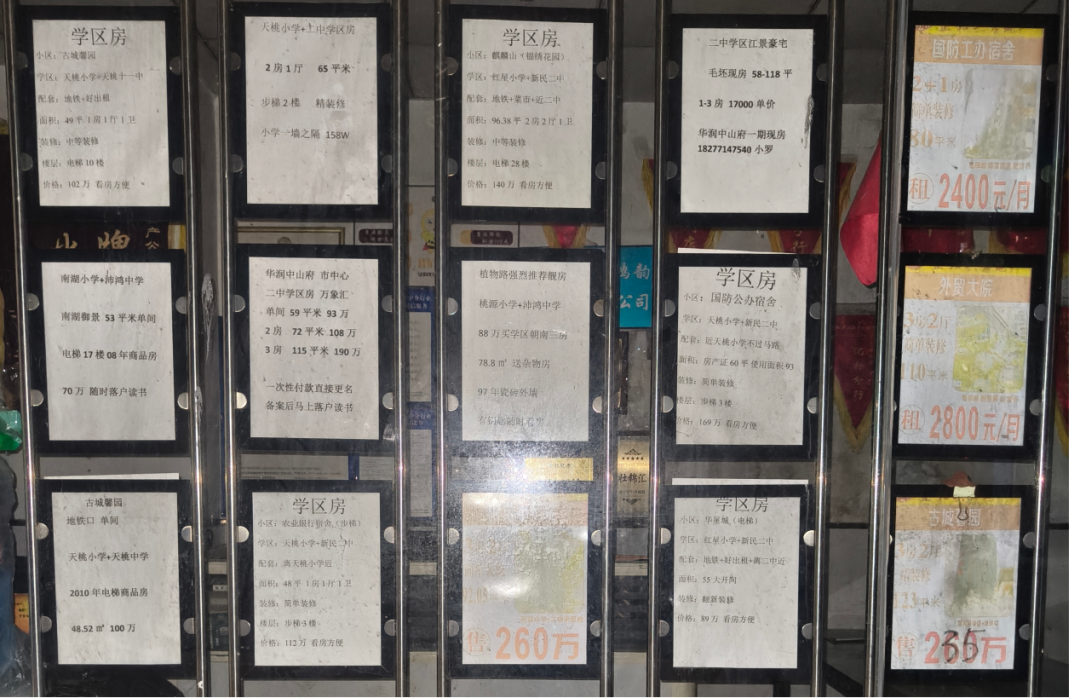 学区房
小区：古城馨园
学区：天桃小学+天桃十一中
配套：地铁+好出租
面积：49平1房1厅1卫
装修：中等装修
楼层：电梯10楼
价格：102万 看房方便
天桃小学+二中学区房
2房1厅 65平米
步梯2楼 精装修
小学一墙之隔 158W
学区房
小区：麒麟山（锦绣花园）
学区：红星小学+新民二中
配套：地铁+菜市+近二中
面积：96.38平2房2厅1卫
装修：中等装修
楼层：电梯28楼
价格：140万 看房方便
二中学区江景豪宅
毛坯现房 58-118平
1-3房 17000单价
华润中山府一期现房
18277147540 小罗
国防工办宿舍
2房1厅
简单装修
80平米
租 2400元/月
南湖小学+沛鸿中学
南湖御景 53平米单间
电梯17楼08年商品房
70万 随时落户读书
华润中山府 市中心
二中学区房 万象汇
单间 59平米 93万
2房 72平米 108万
3房 115平米 190万
一次性付款直接更名
备案后马上落户读书
植物路强烈推荐靓房
桃源小学+沛鸿中学
88万买学区朝南三房
78.8㎡ 送杂物房
97年瓷砖外墙
鸿韵
公司
学区房
小区：国防公办宿舍
学区：天桃小学+新民二中
配套：近天桃小学不过马路
面积：房产证60平使用面积93
装修：简单装修
楼层：步梯3楼
价格：169万 看房方便
外贸大院
3房2厅
简单装修
110平米
租 2800元/月
古城馨园
地铁口 单间
天桃小学+天桃中学
2010年电梯商品房
48.52㎡ 100万
学区房
小区：农业银行宿舍（步梯）
学区：天桃小学+新民二中
配套：离天桃小学近
面积：48平1房1厅1卫
装修：简单装修
楼层：步梯3楼
价格：112万 看房方便
售 260万
壮锦汇
学区房
小区：华星城（电梯）
学区：红星小学+新民二中
配套：地铁+好出租+离二中近
面积：55大开间
装修：翻新装修
价格：89万 看房方便
古城馨园
3房2厅
123平米